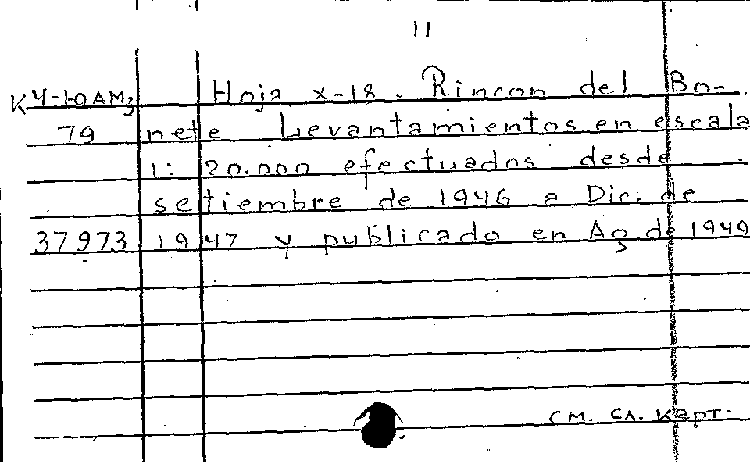 11
КУ-10АМ3 Hoja X-18. Rincon del Bo-
79 nete Levantamientos en escala
1: 20.000 efectuados desde
setiembre de 1946 a Dic. de
37973 1947 y publicado en Ag de 1949
см. сл. карт.